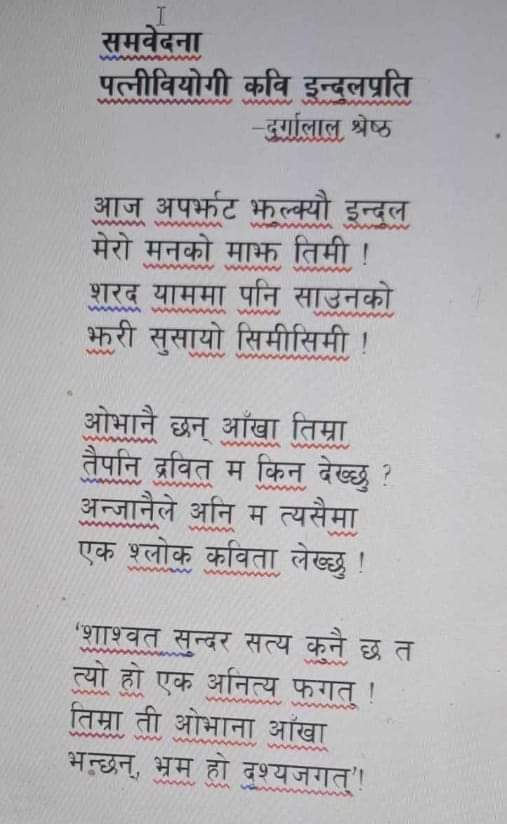 समवेदना
पत्नीवियोगी कवि इन्दुलप्रति
–दुर्गालाल श्रेष्ठ
आज अपर्झट झुल्क्यौ इन्दुल
मेरो मनको माझ तिमी !
शरद याममा पनि साउनको
झरी सुसायो सिमीसिमी !
ओभानै छन् आँखा तिम्रा
तैपनि द्रवित म किन देख्छु ?
अन्जानैले अनि म त्यसैमा
एक श्लोक कविता लेख्छु !
‘शाश्वत सुन्दर सत्य कुनै छ त
त्यो हो एक अनित्य फगत् !
तिम्रा ती ओभाना आँखा
भन्छन्, भ्रम हो दृश्यजगत्’!